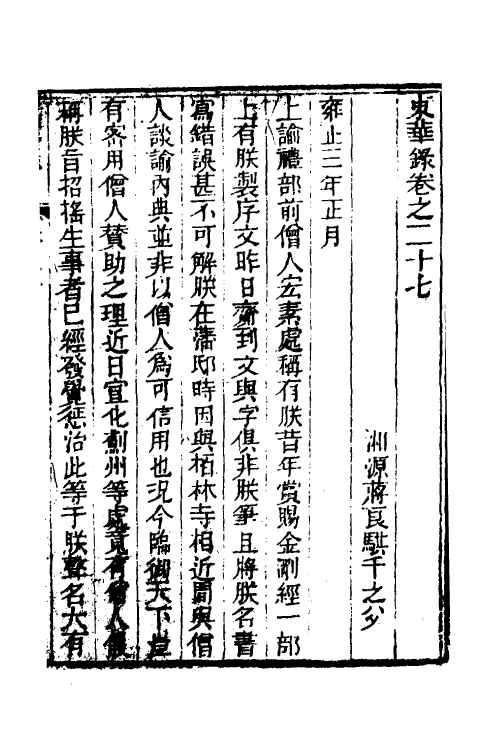 東華錄卷之二十七
湘源蔣良騏千之父
雍正三年正月
上諭禮部前僧人宏素處稱有朕昔年賞賜金剛經一部
上有朕製序文昨日齎到文與字俱非朕筆且將朕名書
寫錯誤甚不可解朕在藩邸時因與柏林寺相近間與僧
人談論內典並非以僧人爲可信用也况今臨御天下豈
有密用僧人賛助之理近日宣化薊州等處竟有僧人假
稱朕旨招搖生事者已經發覺懲治此等于朕聲名大有